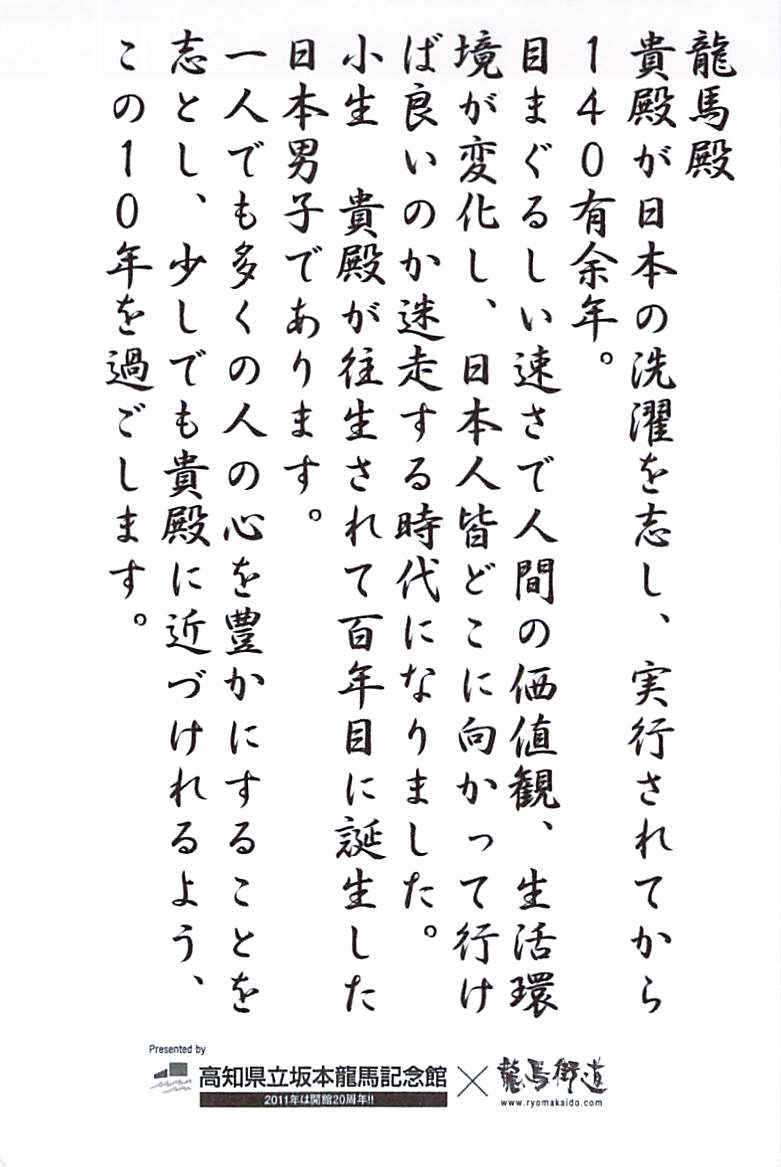 龍馬殿
貴殿が日本の洗濯を志し、実行されてから
140有余年。
目まぐるしい速さで人間の価値観、生活環
境が変化し、日本人皆どこに向かって行け
ば良いのか迷走する時代になりました。
小生　貴殿が往生されて百年目に誕生した
日本男子であります。
一人でも多くの人の心を豊かにすることを
志とし、少しでも貴殿に近づけれるよう、
この10年を過ごします。
Presented by
高知県立坂本龍馬記念館
2011年は開館20周年!!
×
龍馬街道
www.ryomakaido.com